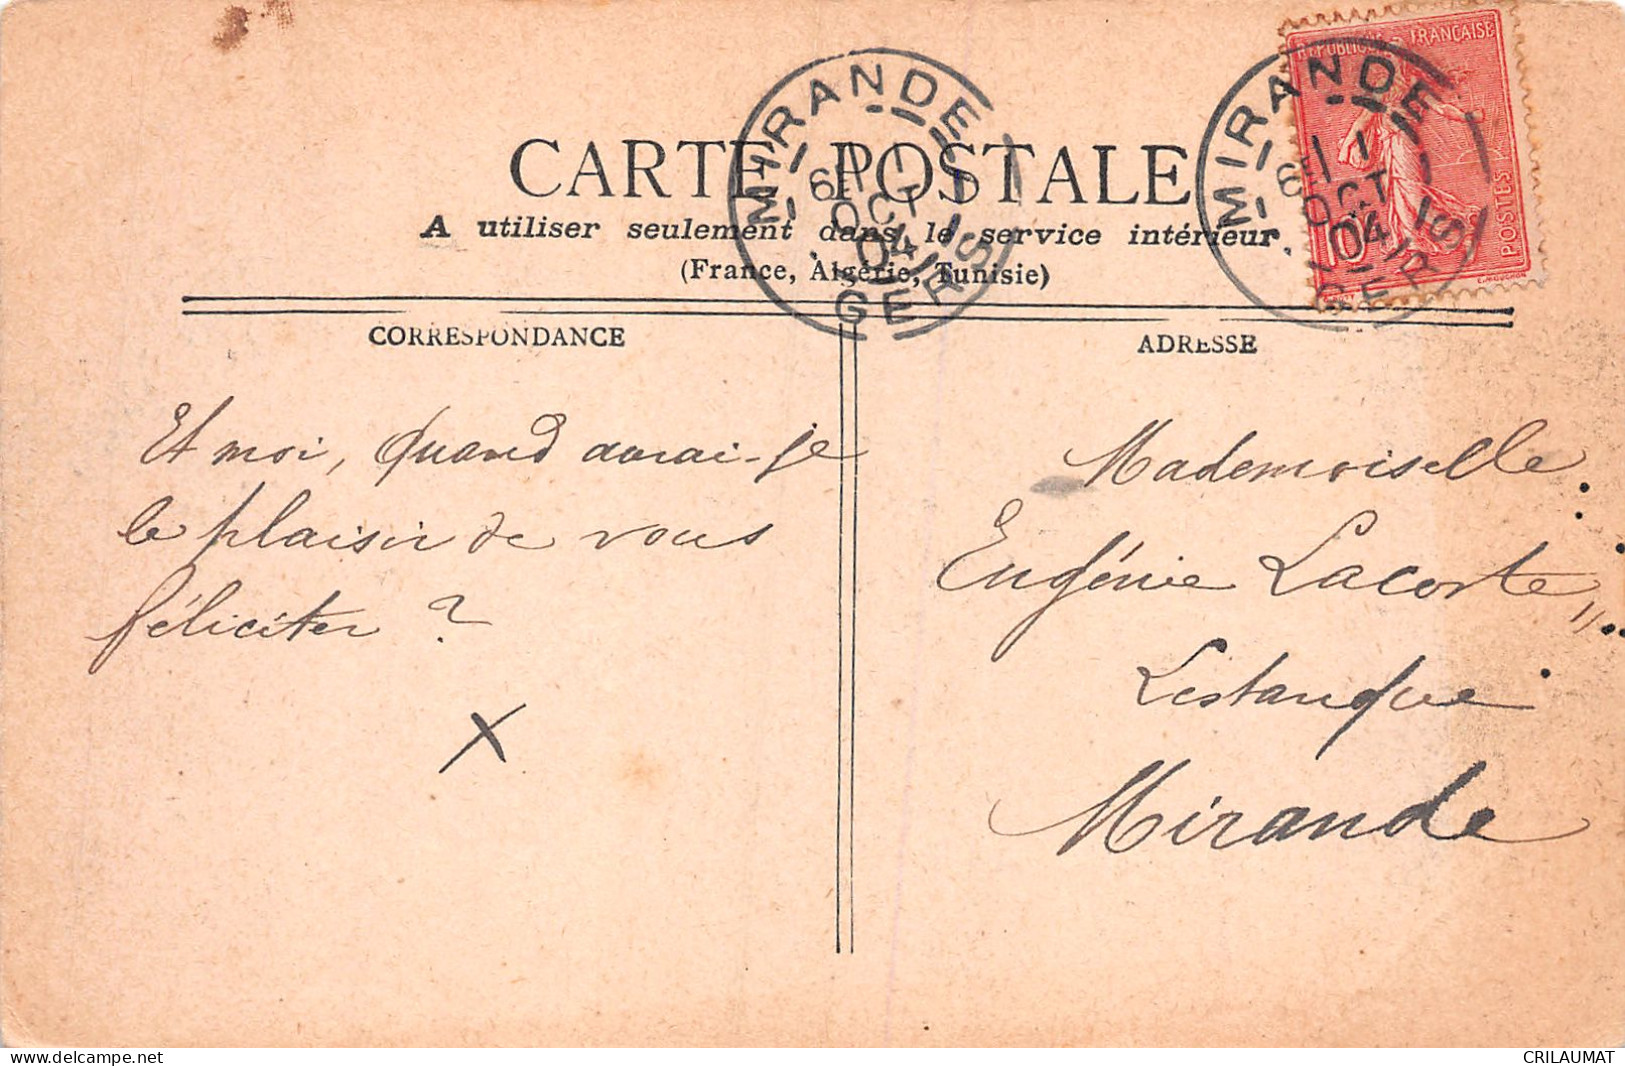 CARTE POSTALE
A utiliser seulement dans le service intérieur.
(France, Algérie, Tunisie)
CORRESPONDANCE
Et moi, Quand aurai-je
le plaisir de vous
féliciter ?
X
MIRANDE
6E 1
OCT
04
GERS
MIRANDE
6E 1
OCT
04
GERS
REPUBLIQUE FRANÇAISE
POSTES
10
ADRESSE
Mademoiselle
Eugénie Lacoste
Lestanque
Mirande
CRILAUMAT